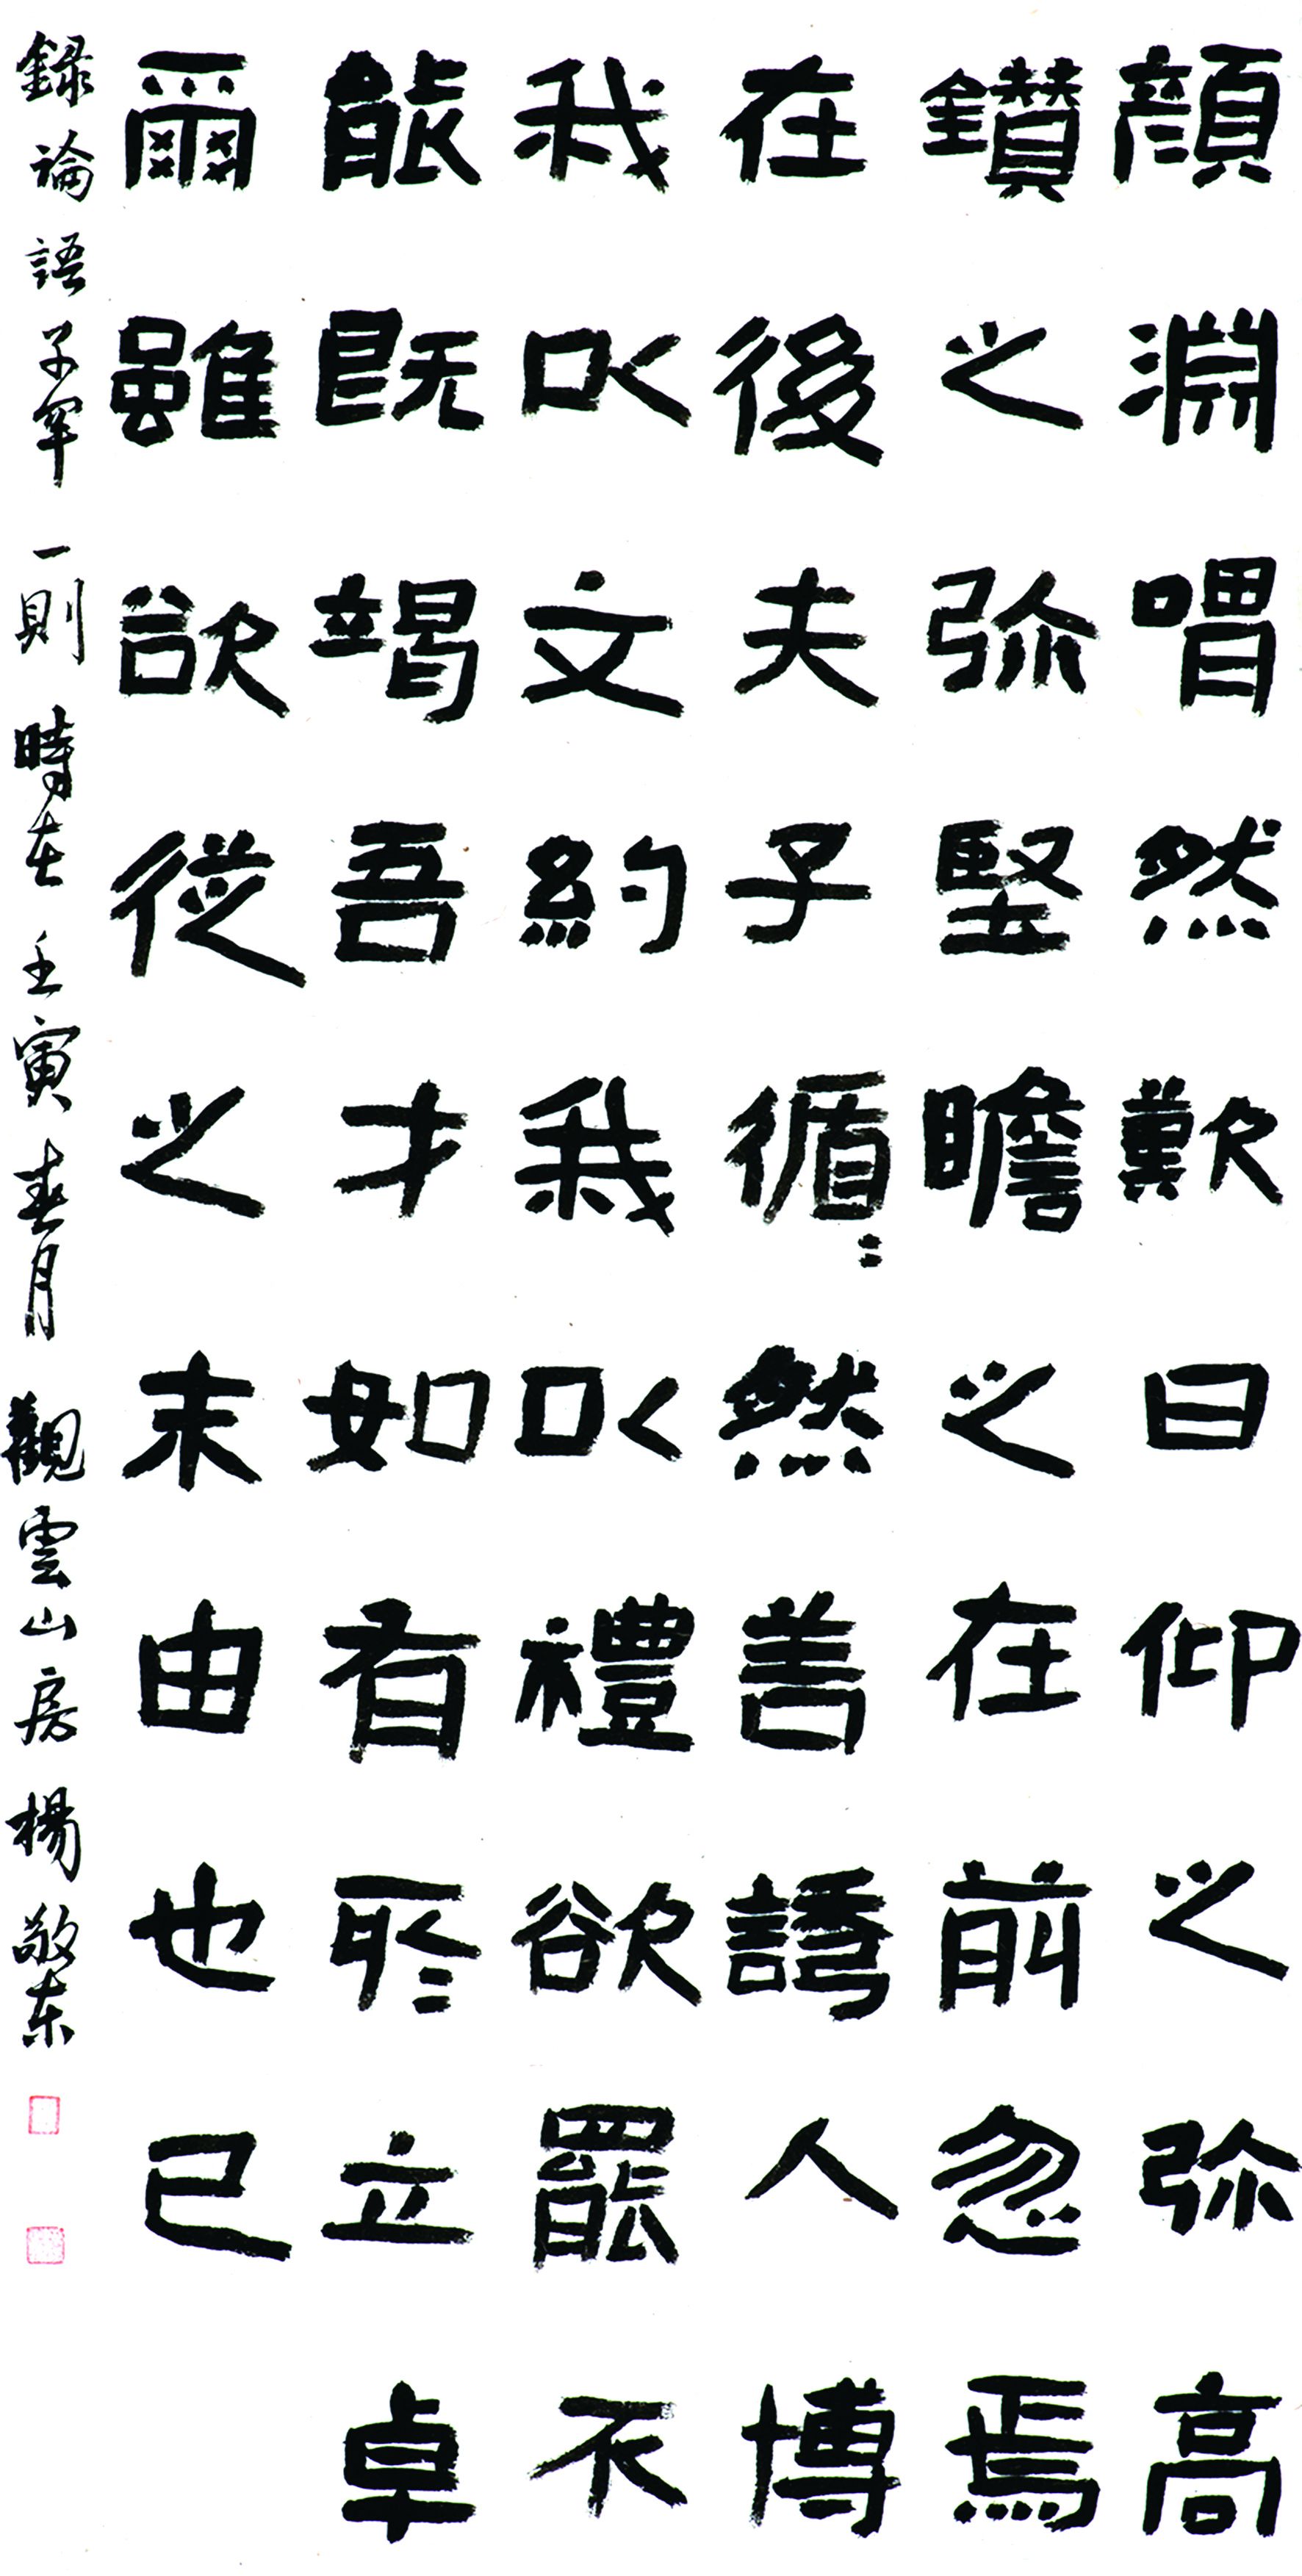 顏淵喟然歎曰仰之弥高
鑽之弥堅瞻之在前忽焉
在後夫子循〻然善誘人博
我以文約我以禮欲罷不
能既竭吾才如有所立卓
爾雖欲從之末由也已
録論語子罕一則時在壬寅春月觀雲山房楊敬东